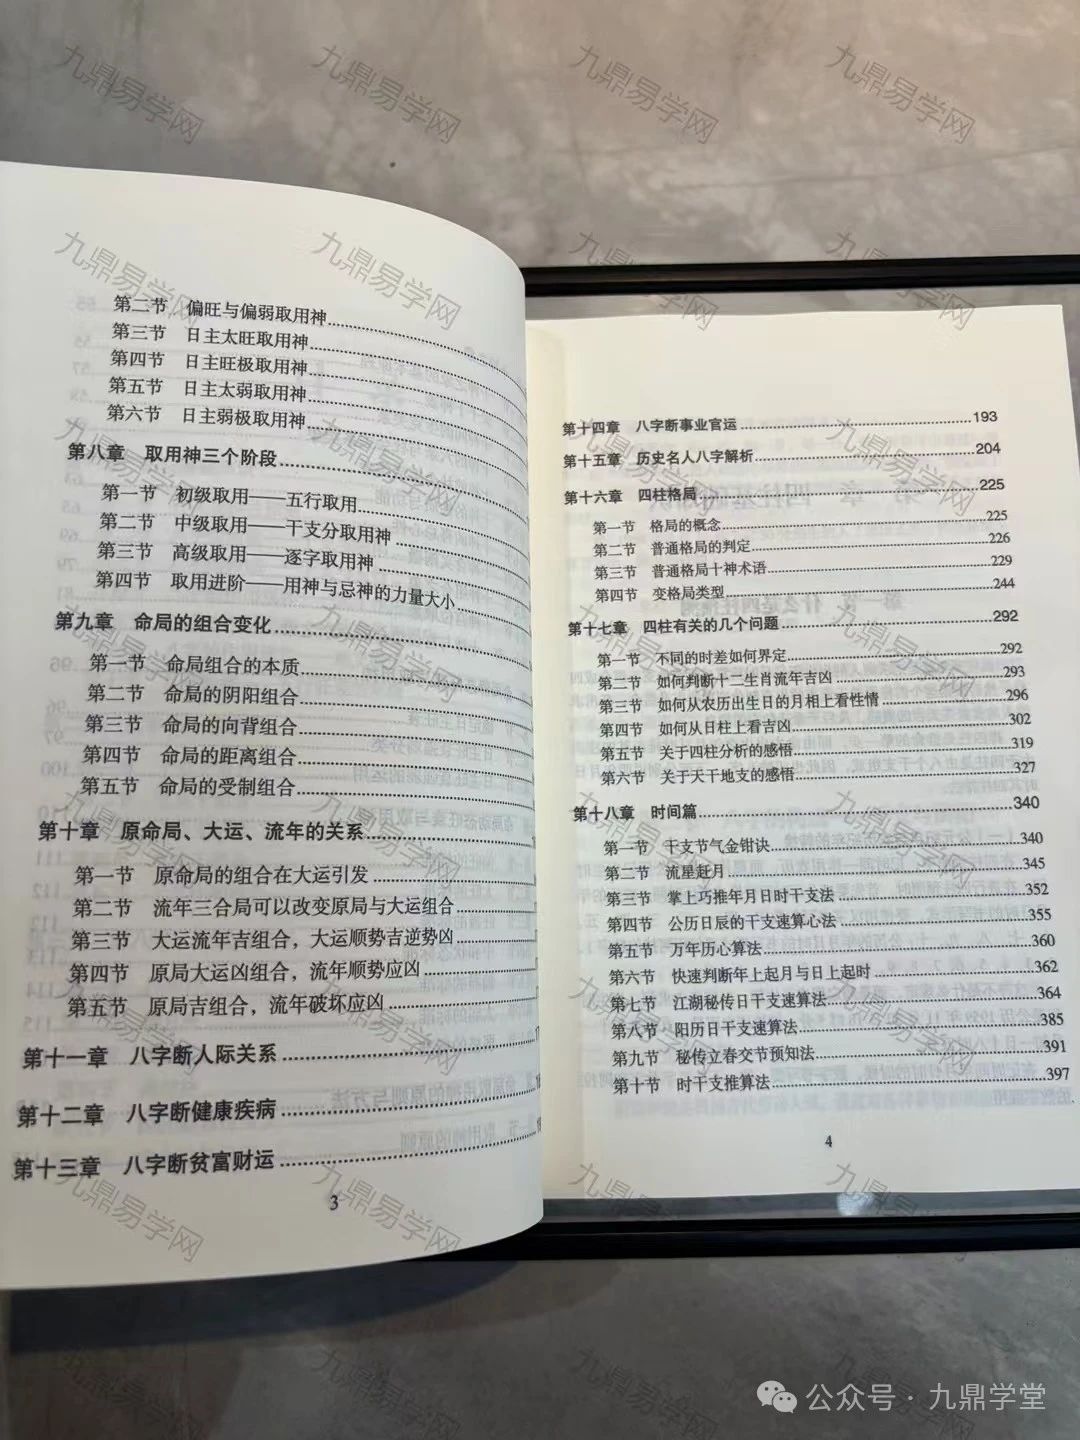 第二节 偏旺与偏弱取用神
第三节 日主太旺取用神
第四节 日主旺极取用神
第五节 日主太弱取用神
第六节 日主弱极取用神
第八章 取用神三个阶段
第一节 初级取用——五行取用
第二节 中级取用——干支分取用神
第三节 高级取用——逐字取用神
第四节 取用进阶——用神与忌神的力量大小
第九章 命局的组合变化
第一节 命局组合的本质
第二节 命局的阴阳组合
第三节 命局的向背组合
第四节 命局的距离组合
第五节 命局的受制组合
第十章 原命局、大运、流年的关系
第一节 原命局的组合在大运引发
第二节 流年三合局可以改变原局与大运组合
第三节 大运流年吉组合，大运顺势吉逆势凶
第四节 原局大运凶组合，流年顺势应凶
第五节 原局吉组合，流年破坏应凶
第十一章 八字断人际关系
第十二章 八字断健康疾病
第十三章 八字断贫富财运
3
第十四章 八字断事业官运 193
第十五章 历史名人八字解析 204
第十六章 四柱格局 225
第一节 格局的概念 225
第二节 普通格局的判定 226
第三节 普通格局十神术语 229
第四节 变格局类型 244
第十七章 四柱有关的几个问题 292
第一节 不同的时差如何界定 292
第二节 如何判断十二生肖流年吉凶 293
第三节 如何从农历出生日的月相上看性情 296
第四节 如何从日柱上看吉凶 302
第五节 关于四柱分析的感悟 319
第六节 关于天干地支的感悟 327
第十八章 时间篇 340
第一节 干支节气金钳诀 340
第二节 流星赶月 345
第三节 掌上巧推年月日时干支法 352
第四节 公历日辰的干支速算心法 355
第五节 万年历心算法 360
第六节 快速判断年上起月与日上起时 362
第七节 江湖秘传日干支速算法 364
第八节 阳历日干支速算法 385
第九节 秘传立春交节预知法 391
第十节 时干支推算法 397
4
九鼎易学网
公众号·九鼎学堂